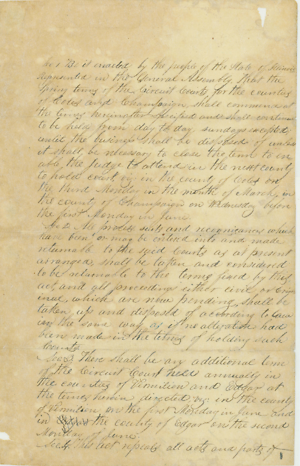 Sec 1 Be it enacted by the people of the State of Illinois
represented in the General Assembly, That the
Spring terms of the Circuit Courts for the counties
of Coles and Champaign shall commence at
the times hereinafter specified and shall continue
to be held from day to day sundays excepted
until the business shall be disposed of unless
it shall be necessary to close the term to en
able the Judge to attend in the next county
to hold court viz in the county of Coles on
the third Monday in the month of March, in
the county of Champaign on Wednesday before
the first Monday in June
Sec 2. All process suits and recognizances which
have been or may be entered into and made
returnable to the said courts as at present
arranged shall be taken and considered
to be returnable to the terms fixed by this
act and all proceedings either civil or crim
inal which are now pending shall be
taken up and disposed of according to Law in
the same way as if no alteration had
been made in the times of holding such
courts
Sec 3 There shall be an additional term
of the Circuit Court held annually in
the counties of Vermilion and Edgar at
the times herein directed viz in the county
of Vermilion on the first Monday in June And
in the county of Edgar on the second
Monday of June
Sec 4 This act repeals all acts and parts of